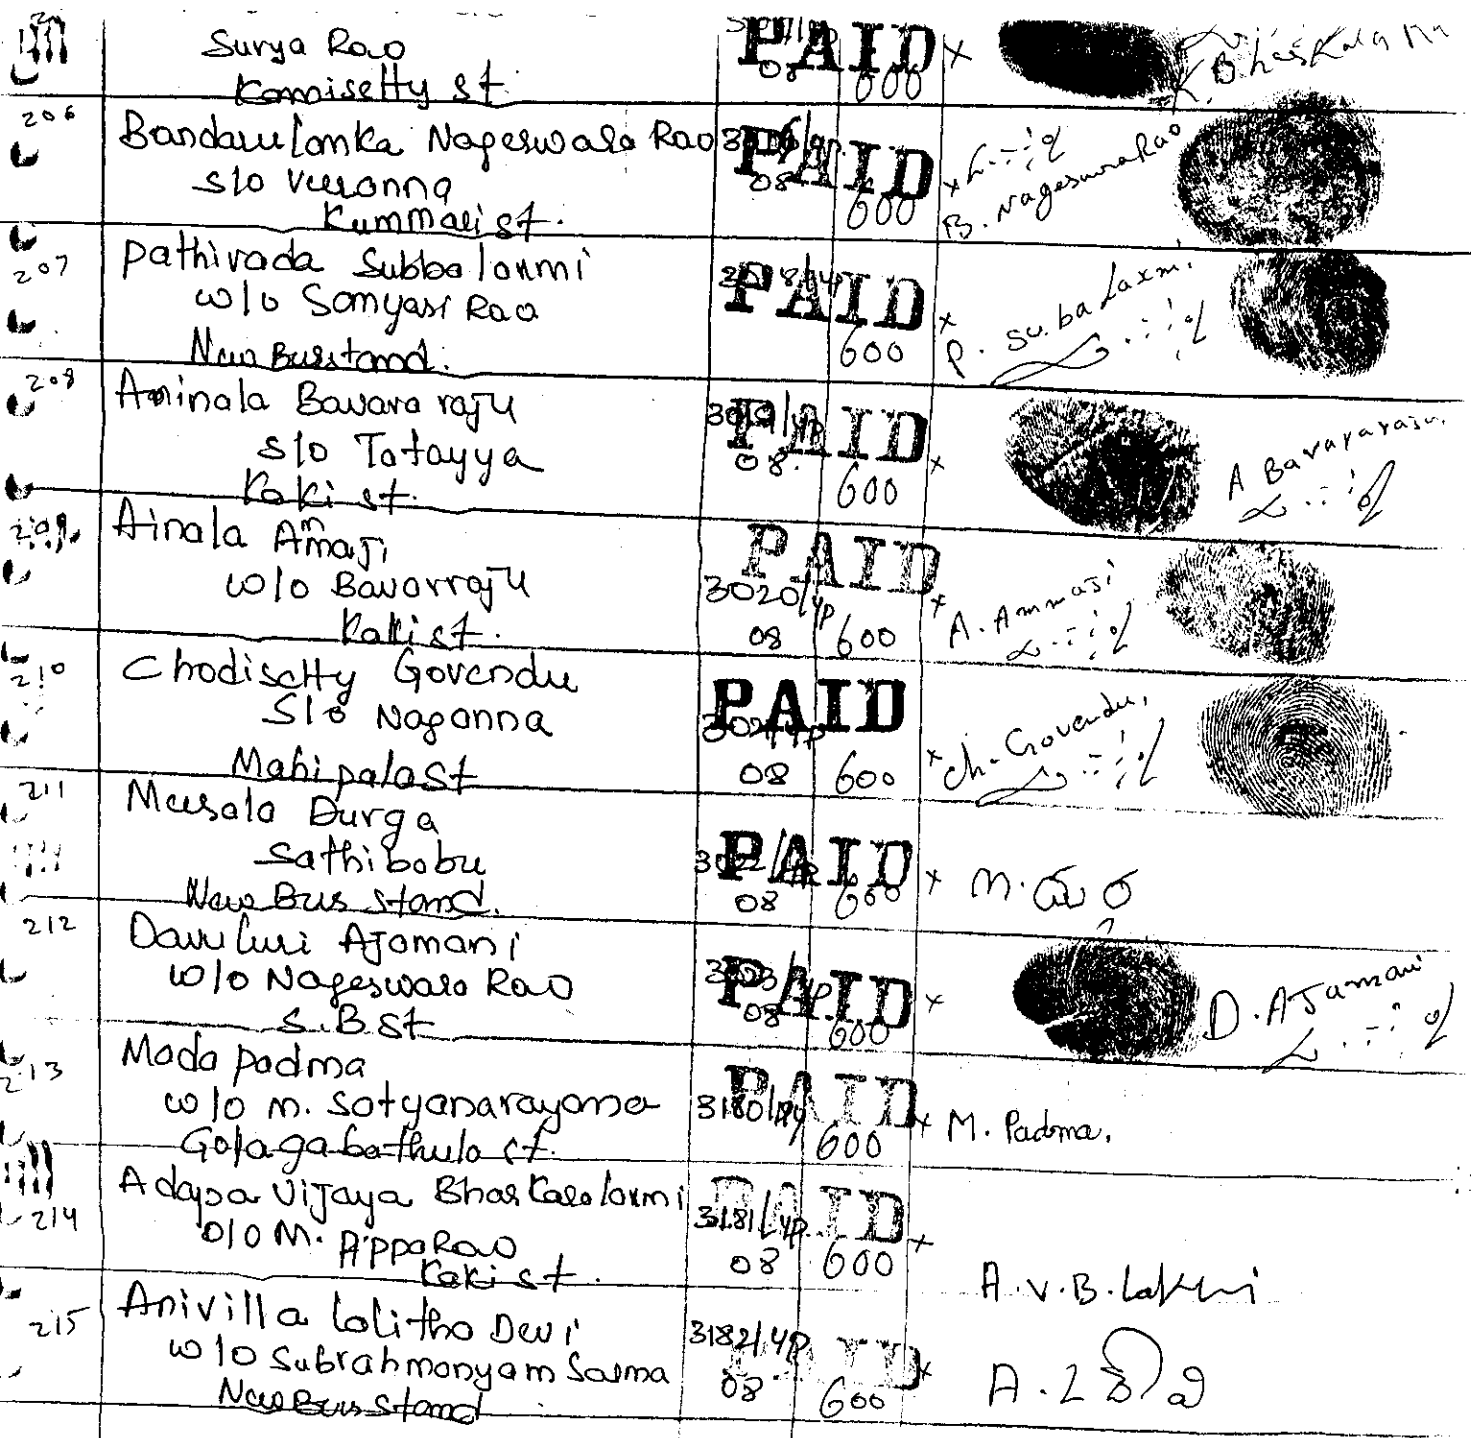 Surya Rao
Kamisetty st
PAID
08 600
K. Bhaskala
206
Bandarulanka Nageswara Rao
s/o Veeranna
Kummari st.
PAID
08 600
B. Nageswara Rao
207
Pathivada Subbalaxmi
w/o Sanyasi Rao
New Busstand.
PAID
600
P. Su.ba laxmi
208
Aninala Bavara raju
s/o Tatayya
Kaki st.
3019/4p PAID
08. 600
A Bavararaju
209
Ainala Ammaji
w/o Bavarraju
Kaki st.
PAID
3020/4p
08 600
A. Ammaji
210
Chodisetty Govendu
S/o Naganna
Mahipala St
PAID
3021/4p
08 600
Ch. Govendu,
211
Meesala Durga
Sathibabu
New Bus stand.
3022/4p PAID
08 600
212
Davuluri Ajamani
w/o Nageswara Rao
S.B St
PAID
08 600
D. AJamani
213
Mada padma
w/o M. Satyanarayana
Golagabathula st.
3180/4p PAID
600
M. Padma.
214
Adapa Vijaya Bhaskaralaxmi
D/o M. AppaRao
Kaki st.
3181/4p PAID
08 600
A.V.B. Lakshmi
215
Anivilla Lalitha Devi
w/o Subrahmanyam Sarma
New Bus Stand
3182/4p PAID
08 600